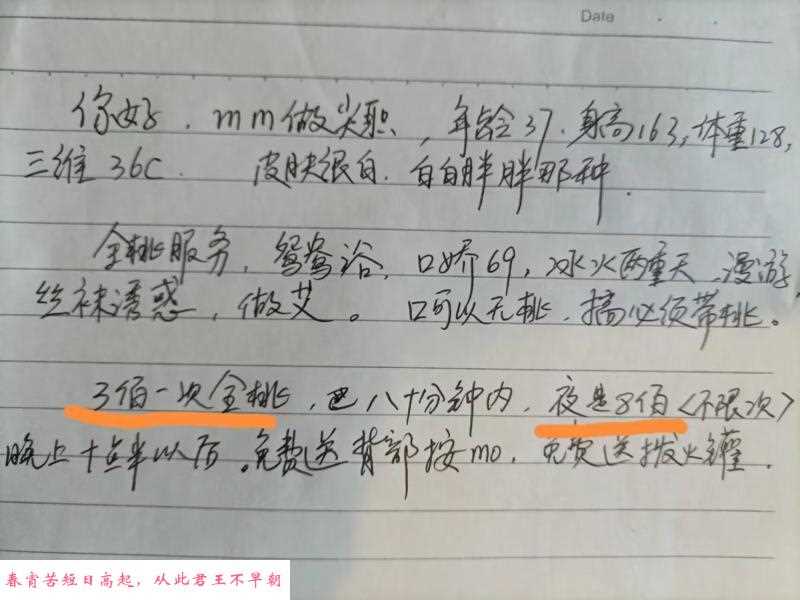 Date
你好．mm做尖职，年龄37．身高163，体重128，
三维36C．皮肤很白．白白胖胖那种．
全桃服务，鸳鸯浴，口娇69，冰火两重天，漫游
丝袜诱惑，做艾。口可以无桃，搞必须带桃。
3佰一次全桃，八十分钟内，夜是8佰〈不限次〉
晚上十点半以后。免费送背部按mo，免费送拔火罐．
春宵苦短日高起，从此君王不早朝